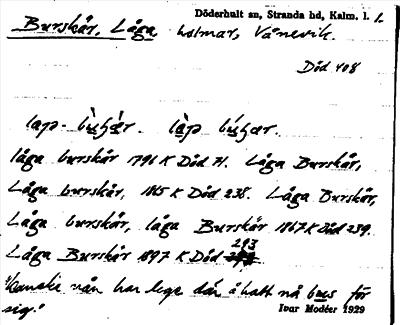 Döderhult sn, Stranda hd, Kalm. l. 1.
Burskär, Låga, holmar, Vånevik.
Död 408
låga burskär 1791 K Död 71. Låga Burskär,
Låga burskär, 1865 K Död 238. Låga Burskär,
Låga burskär, låga Burskär 1867 K Död 239.
Låga Burskär 1897 K Död 293
"kanske nån har lege där å hatt nå bus för
sig."
Ivar Modéer 1929